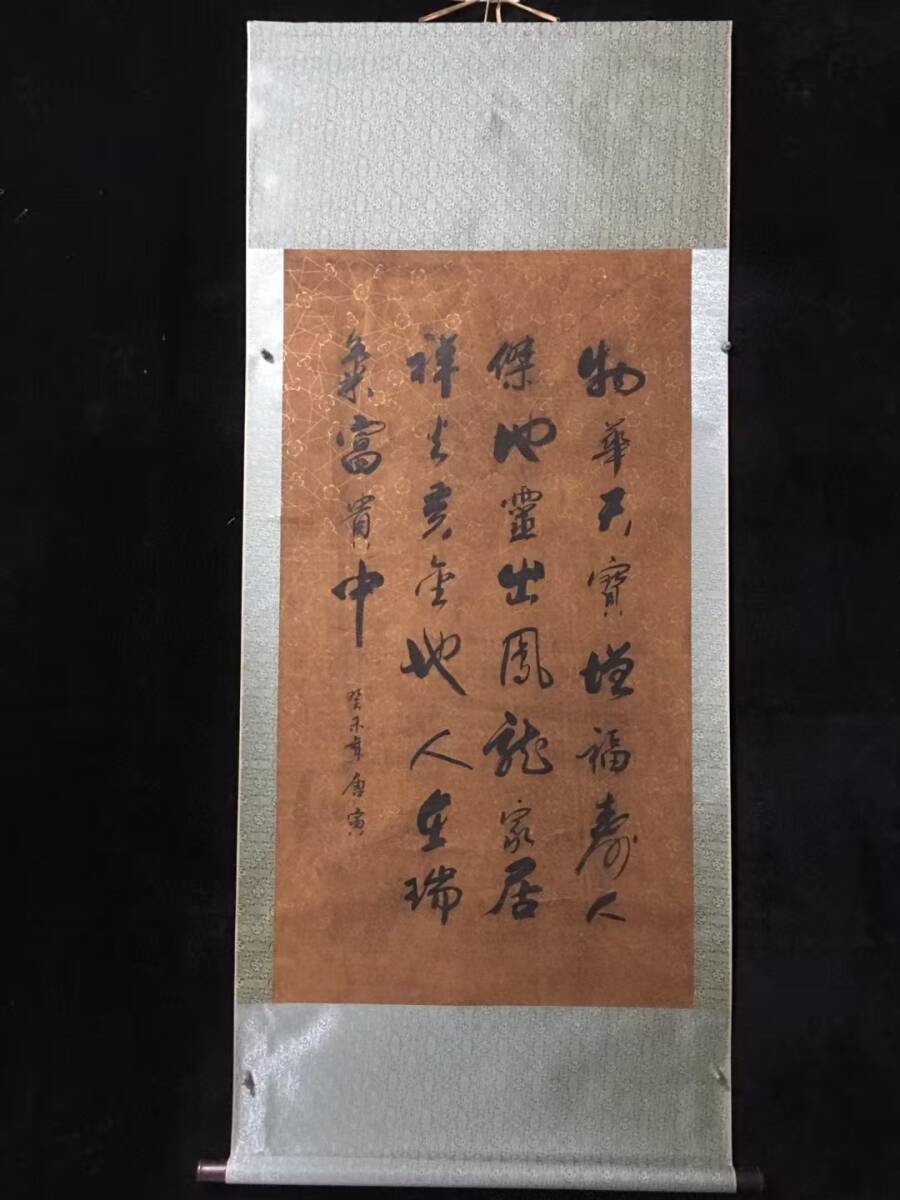 物華天寶增福壽人
傑地靈出鳳龍家居
祥光黃金地人在瑞
氣富貴中
癸未年唐寅